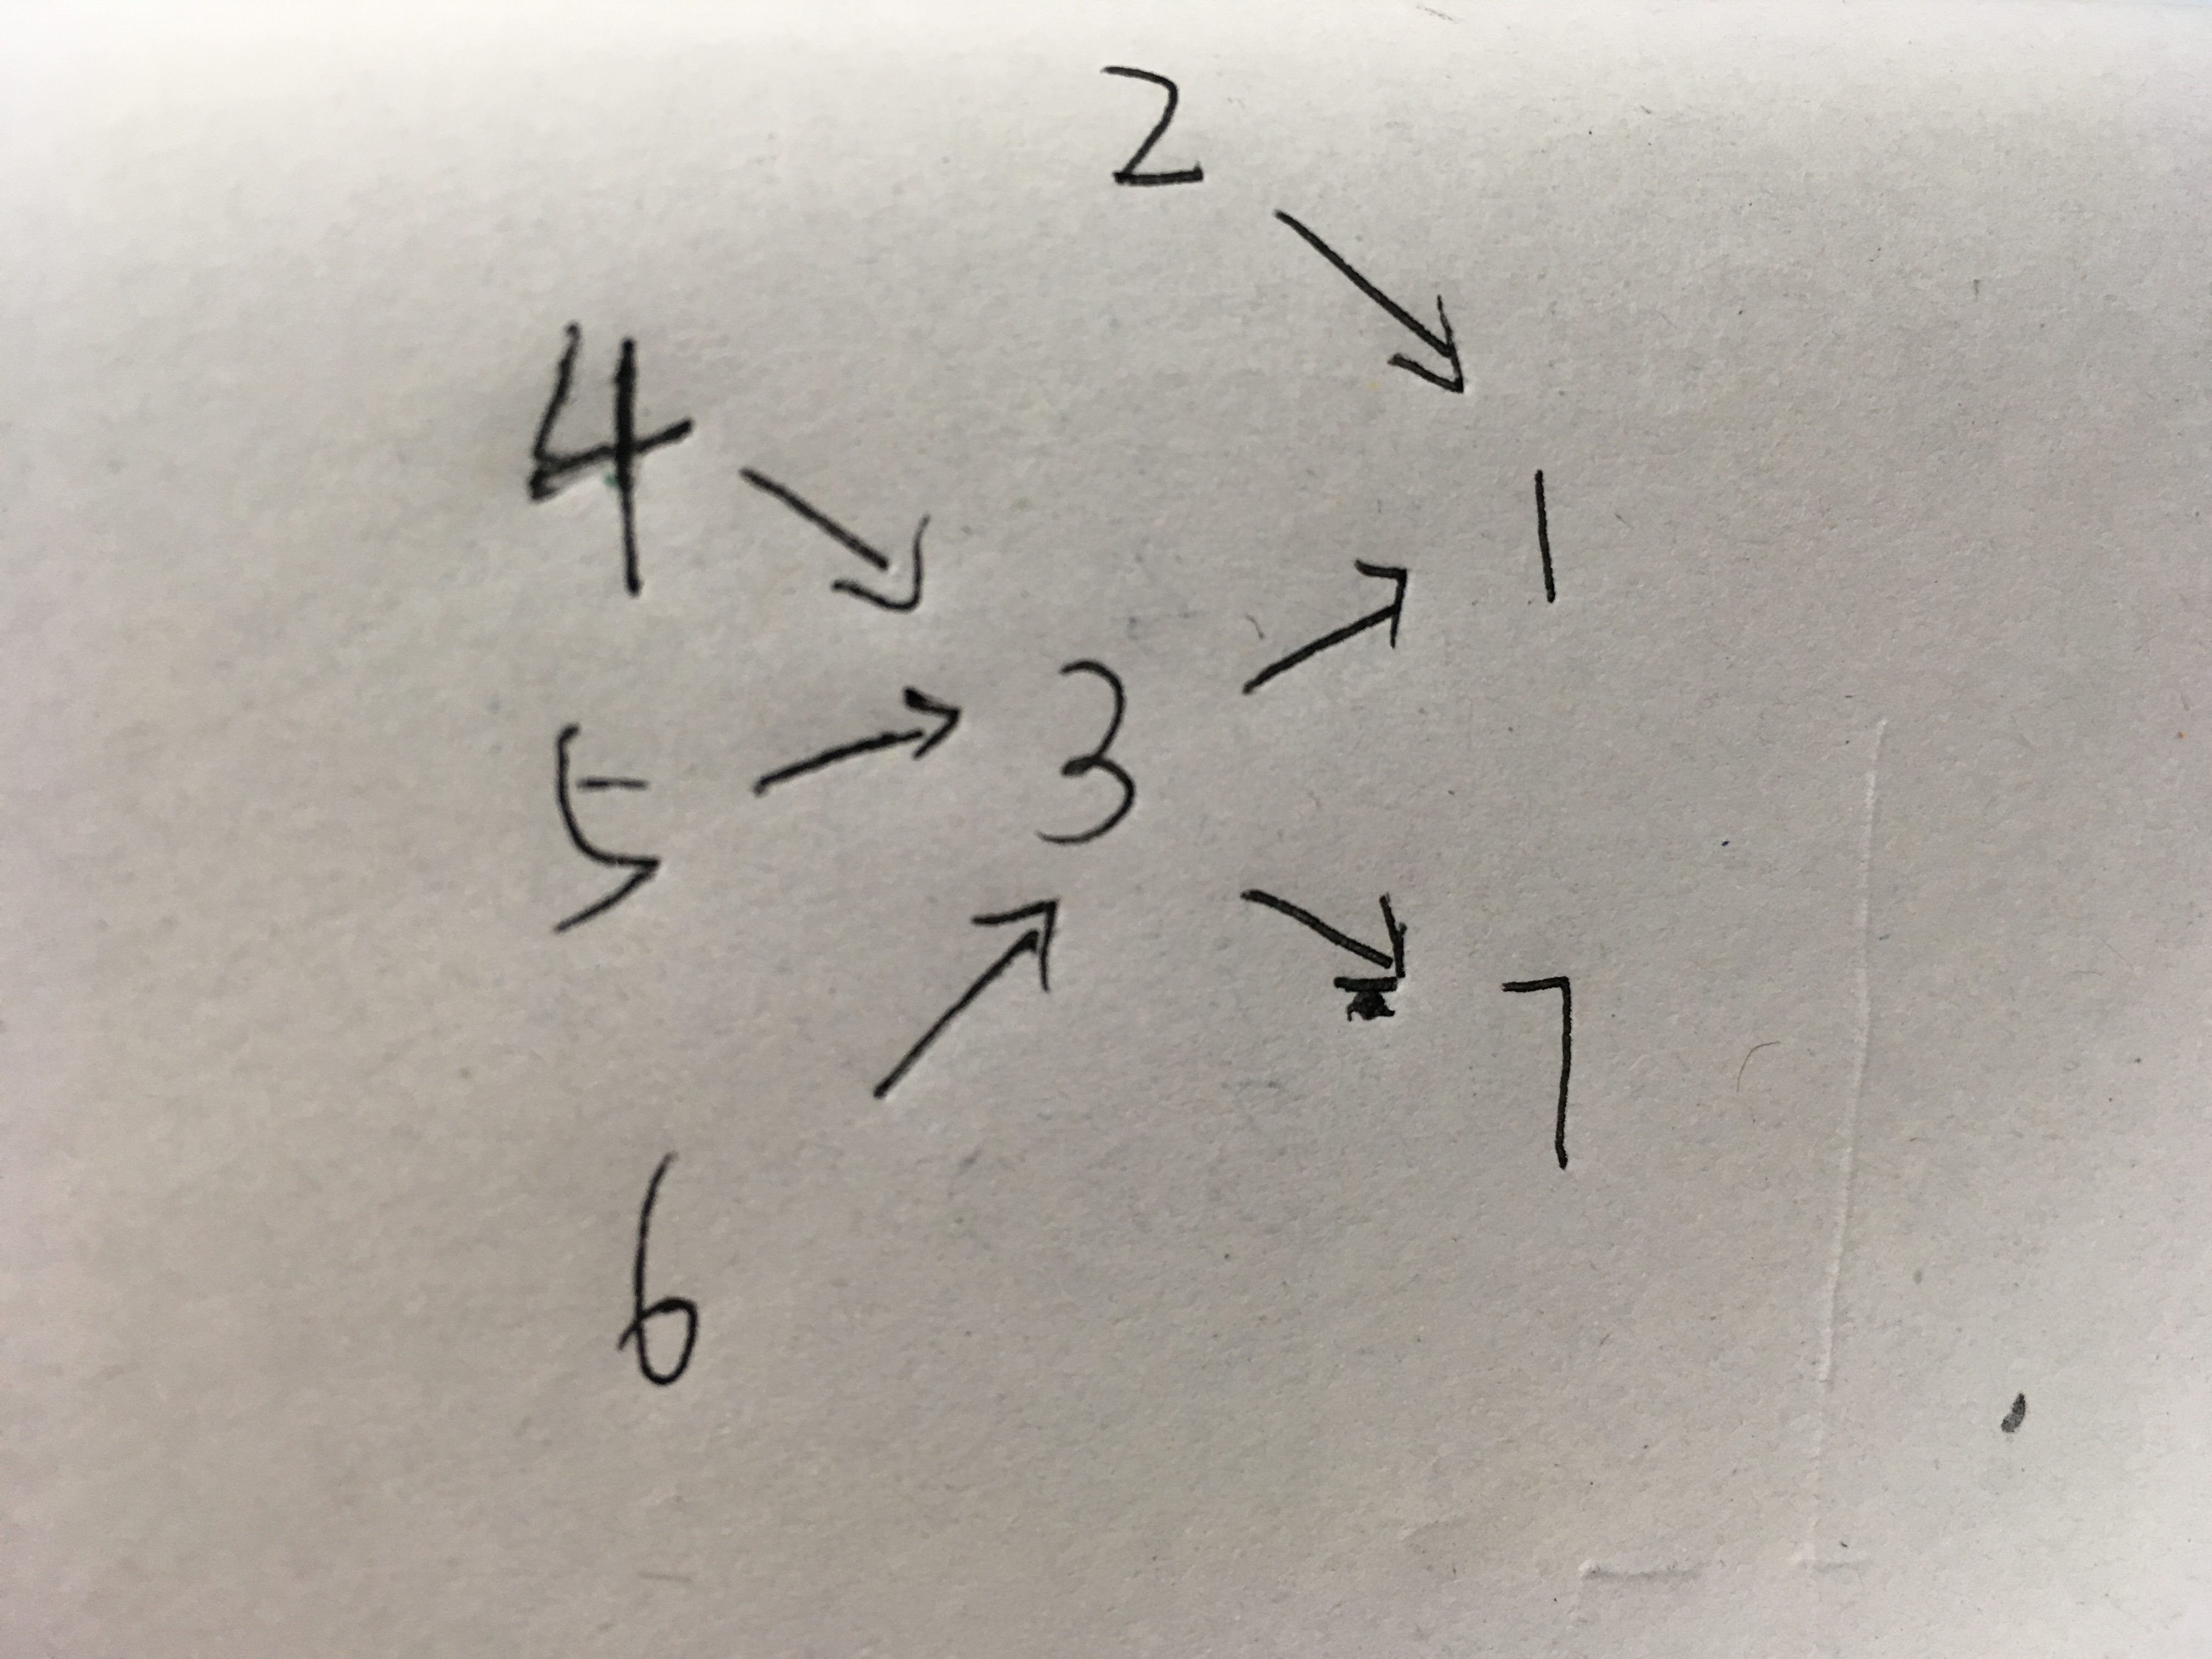 2
4
1
5 3
7
6